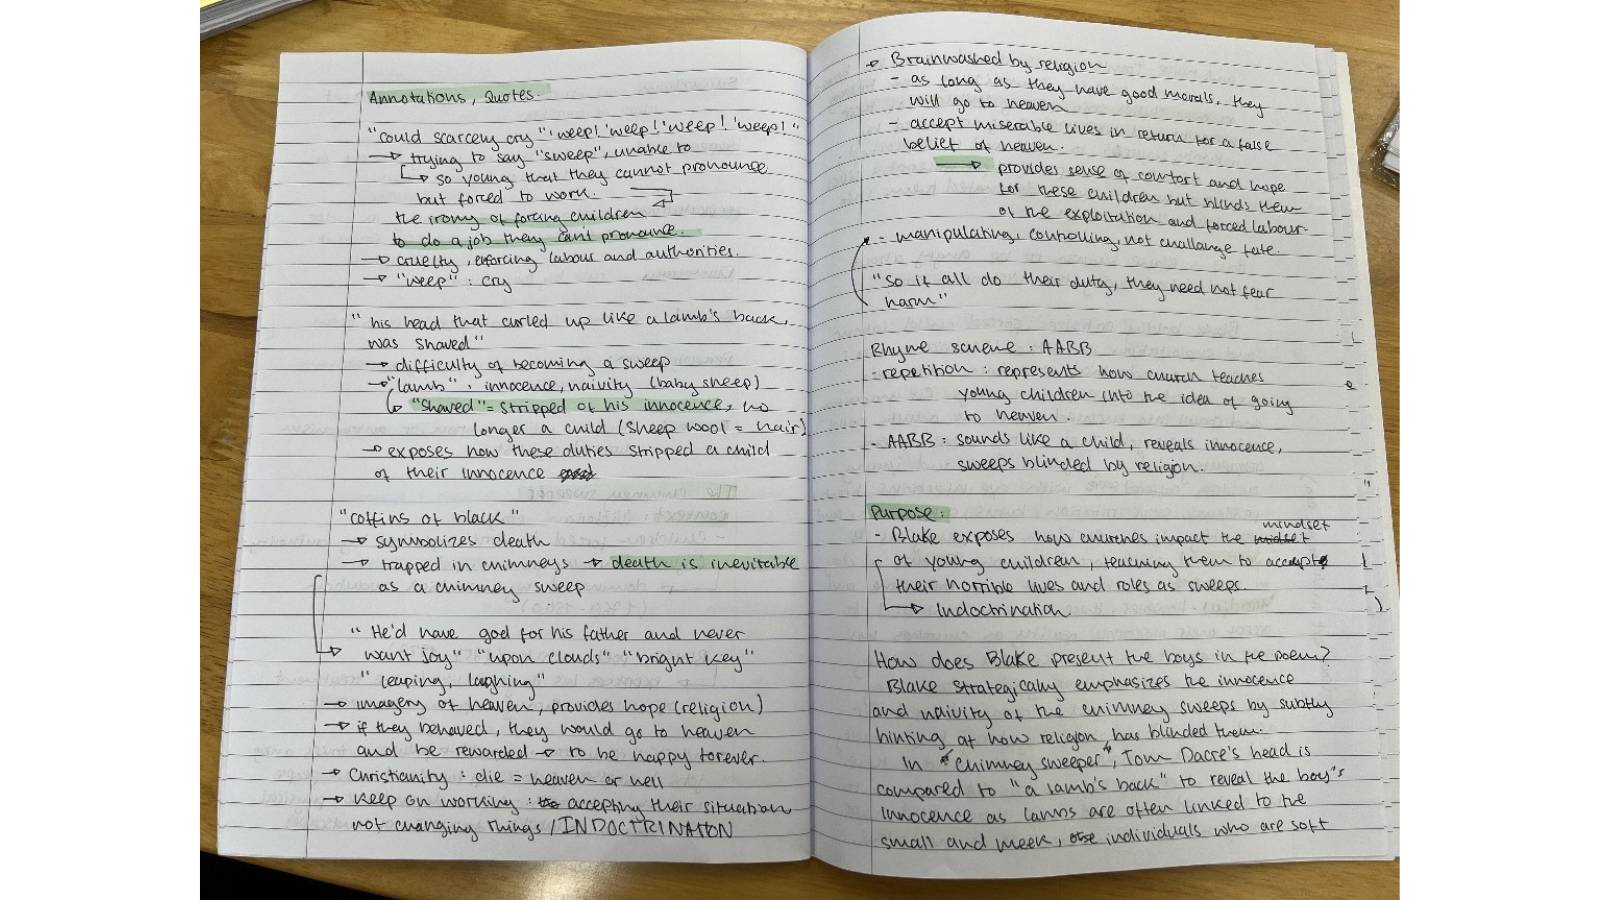 Annotations, Quotes.
"could scarcely cry "'weep! 'weep! 'weep! 'weep!"
→ trying to say "sweep", unable to
↳ so young that they cannot pronounce
but forced to work.
the irony of forcing children
to do a job they can't pronounce.
→ cruelty, enforcing labour and authorities.
→ "weep" : cry
" his head that curled up like a lamb's back,
was shaved"
→ difficulty of becoming a sweep
→ "lamb", innocence, naivity (baby sheep)
↳ "Shaved" = stripped of his innocence, no
longer a child (sheep wool = hair)
→ exposes how these duties stripped a child
of their innocence
"coffins of black"
→ symbolizes death
→ trapped in chimneys → death is inevitable
as a chimney sweep
" He'd have god for his father and never
want joy" "upon clouds" "bright key"
" leaping, laughing"
→ imagery of heaven, provides hope (religion)
→ if they behaved, they would go to heaven
and be rewarded → to be happy forever.
→ Christianity : die = heaven or hell
→ keep on working : accepting their situation,
not changing things / INDOCTRINATION
→ Brainwashed by religion
- as long as they have good morals, they
will go to heaven
- accept miserable lives in return for a false
belief of heaven.
→ provides sense of comfort and hope
for these children but blinds them
of the exploitation and forced labour.
- manipulating, controlling, not challange fate.
"so if all do their duty, they need not fear
harm"
Rhyme scheme : AABB
- repetition : represents how church teaches
young children into the idea of going
to heaven.
- AABB : sounds like a child, reveals innocence,
sweeps blinded by religion.
Purpose:
- Blake exposes how churches impact the mindset
of young children, teaching them to accept
their horrible lives and roles as sweeps.
↳ Indoctrination
How does Blake present the boys in the poem?
Blake strategically emphasizes the innocence
and naivity of the chimney sweeps by subtly
hinting at how religion has blinded them.
In "Chimney sweeper", Tom Dacre's head is
compared to "a lamb's back" to reveal the boy's
innocence as lambs are often linked to the
small and meek, individuals who are soft